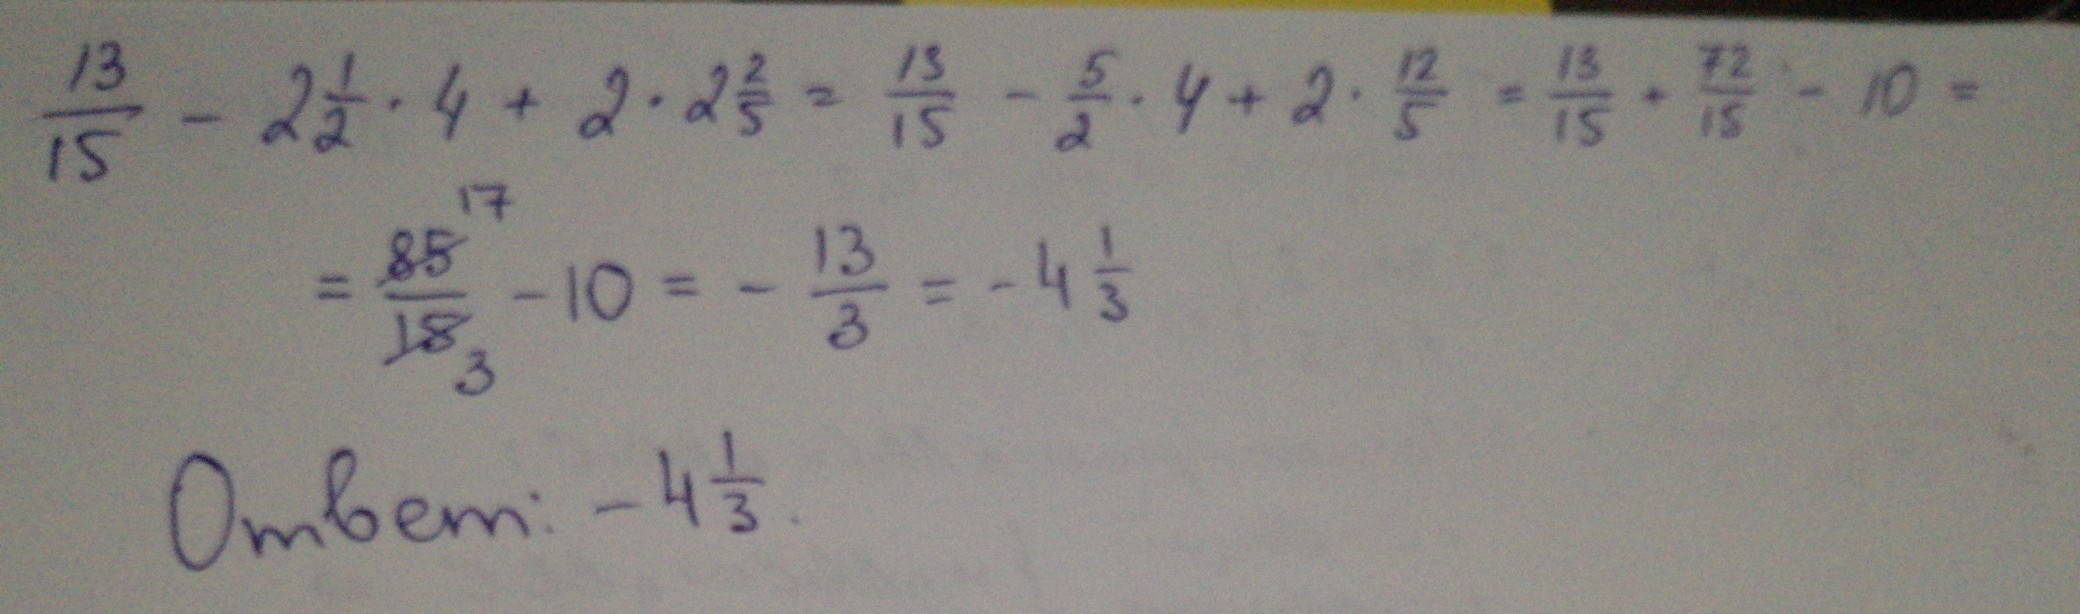 13/15 - 2 1/2 · 4 + 2 · 2 2/5 = 13/15 - 5/2 · 4 + 2 · 12/5 = 13/15 + 72/15 - 10 =
= 85/15 17/3 - 10 = - 13/3 = - 4 1/3
Ответ: - 4 1/3.